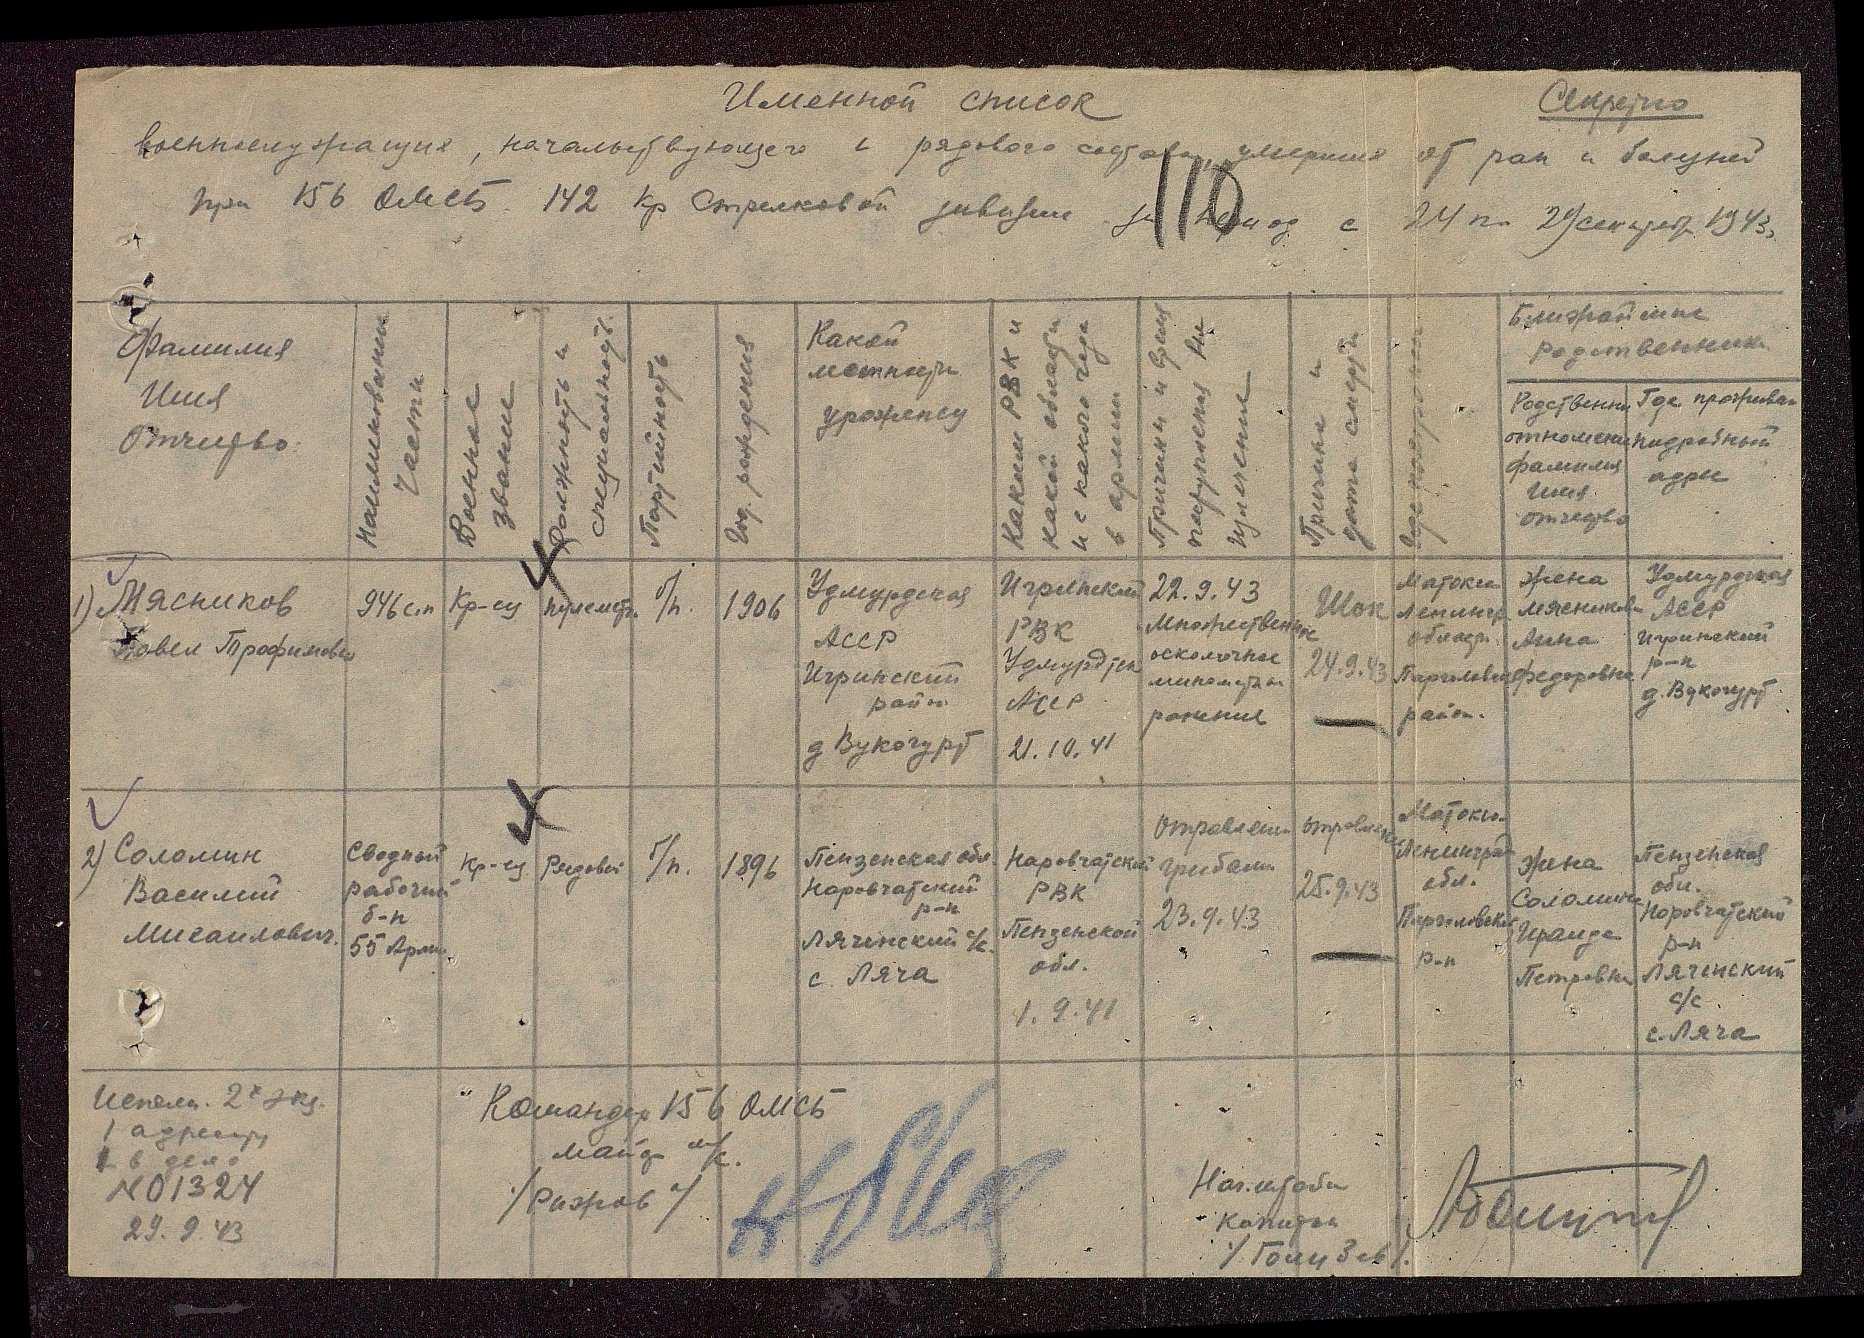 Именной список
Секретно
военнослужащих, начальствующего и рядового состава, умерших от ран и болезней
при 156 ОМСБ 142 кр стрелковой дивизии за период с 24 по 29 сентября 1943г.
110
Фамилия
Имя
Отчество
Наименование
части
Военное
звание
Должность и
специальность
Партийность
Год рождения
Какой
местности
уроженец
Каким РВК и
какой области
и с какого года
в армии
Причина и время
поступления на
излечение
Причина и
дата смерти
Где похоронен
Ближайшие
родственники
Родственны
отношени
фамилия
имя
отчество
Где прожива
подробный
адрес
1) Мясников
Павел Трофимович
946 с.п
Кр-ец
пулеметч.
б/п.
1906
Удмурдская
АССР
Игринский
район
д Вукогурт
Игринский
РВК
Удмурдск
АССР
21.10.41
22.9.43
Множественные
осколочное
минометн
ранения
Шок
24.9.43
Матокса
Ленингр
област.
Парголовск
район.
жена
Мясникова
Анна
Федоровна
Удмурдская
АССР
Игринский
р-н
д. Вукогурт
2) Соломин
Василий
Мисаилович.
Сводный
рабочий
б-н
55 Арми
Кр-ец
Рядовой
б/п.
1896
Пензенская обл.
Наровчатский
р-н
Ляченский с/с.
с. Ляча
Наровчатский
РВК
Пензенской
обл.
1.9.41
Отравлени
грибами
23.9.43
отравление
25.9.43
Матокса
Ленинград
обл.
Парголовский
р-н
жена
Соломина
Ираида
Петровна
Пензенская
обл.
Наровчатский
р-н
Ляченский
с/с
с. Ляча
Исполн. 2х экз.
1 адресату
1 в дело
N01324
29.9.43
Командир 156 ОМСБ
майор м/с.
Нач. штаба
капитан